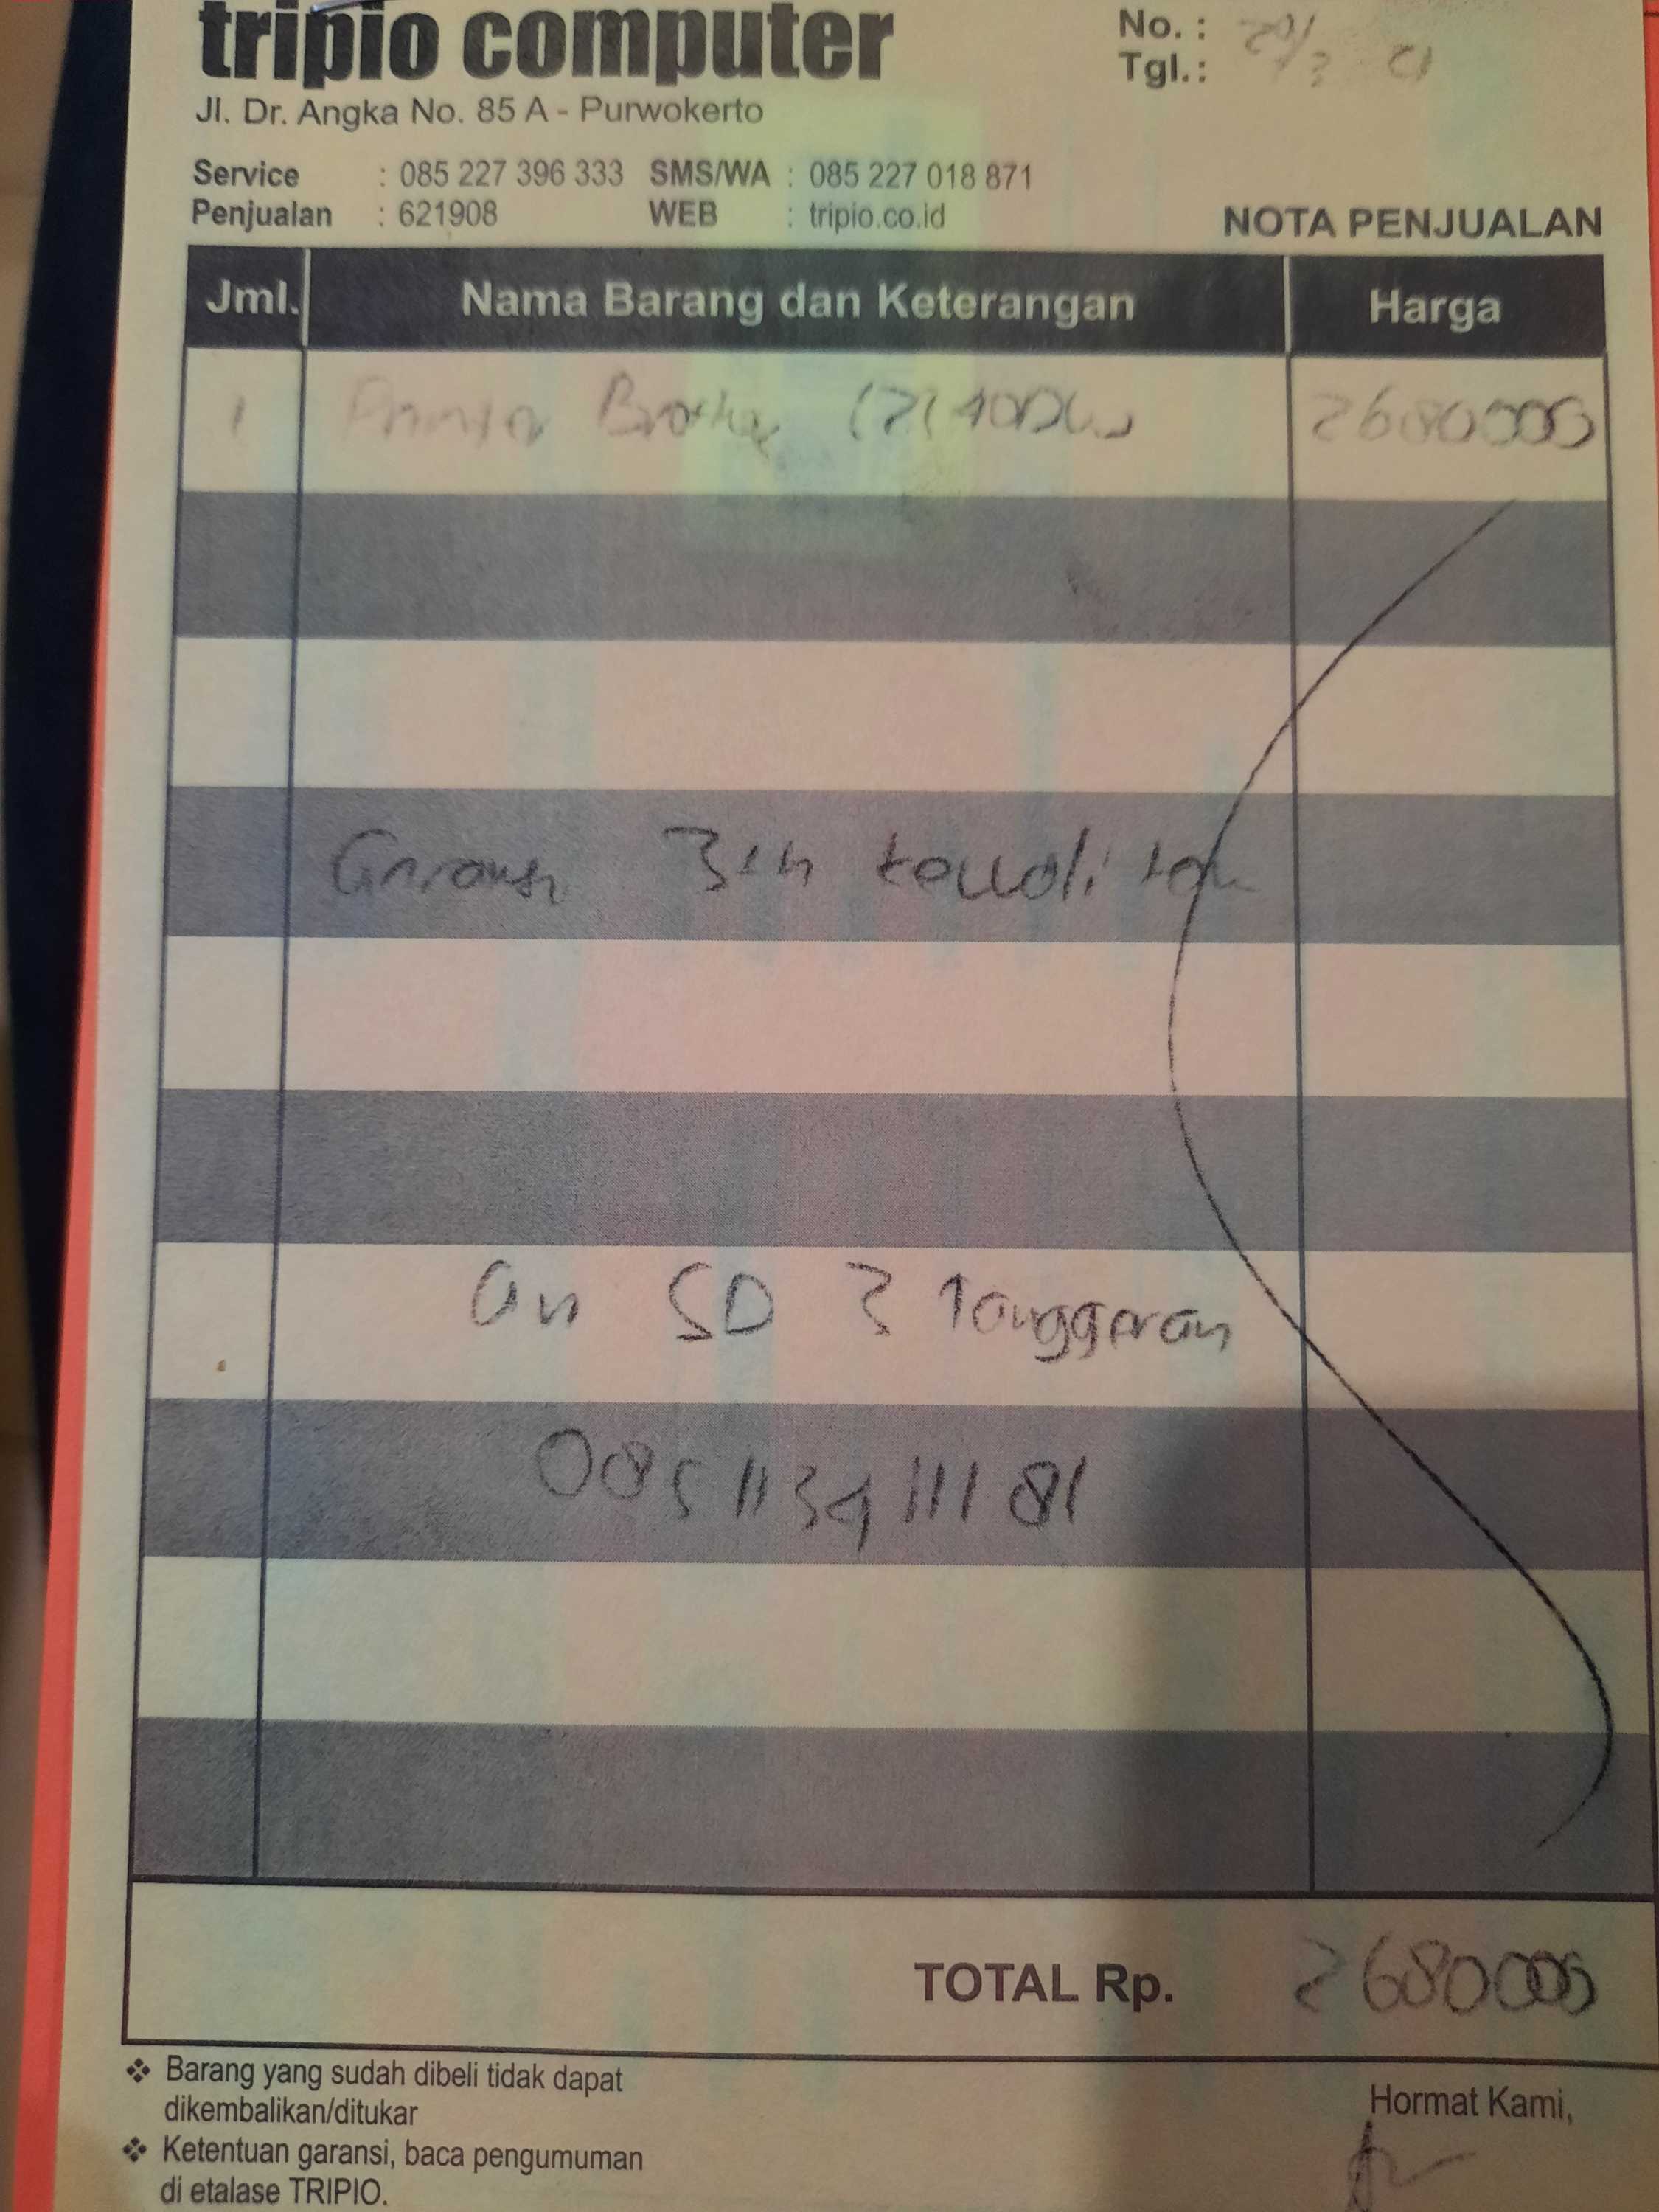 tripio computer
Jl. Dr. Angka No. 85 A - Purwokerto
No. :
Tgl.:
Service : 085 227 396 333 SMS/WA : 085 227 018 871
Penjualan : 621908 WEB : tripio.co.id
NOTA PENJUALAN
Jml. Nama Barang dan Keterangan Harga
1 Printer Brother 2680000
3th kecuali
An SD 3 Tanggeran
TOTAL Rp. 2680000
❖ Barang yang sudah dibeli tidak dapat
dikembalikan/ditukar
❖ Ketentuan garansi, baca pengumuman
di etalase TRIPIO.
Hormat Kami,